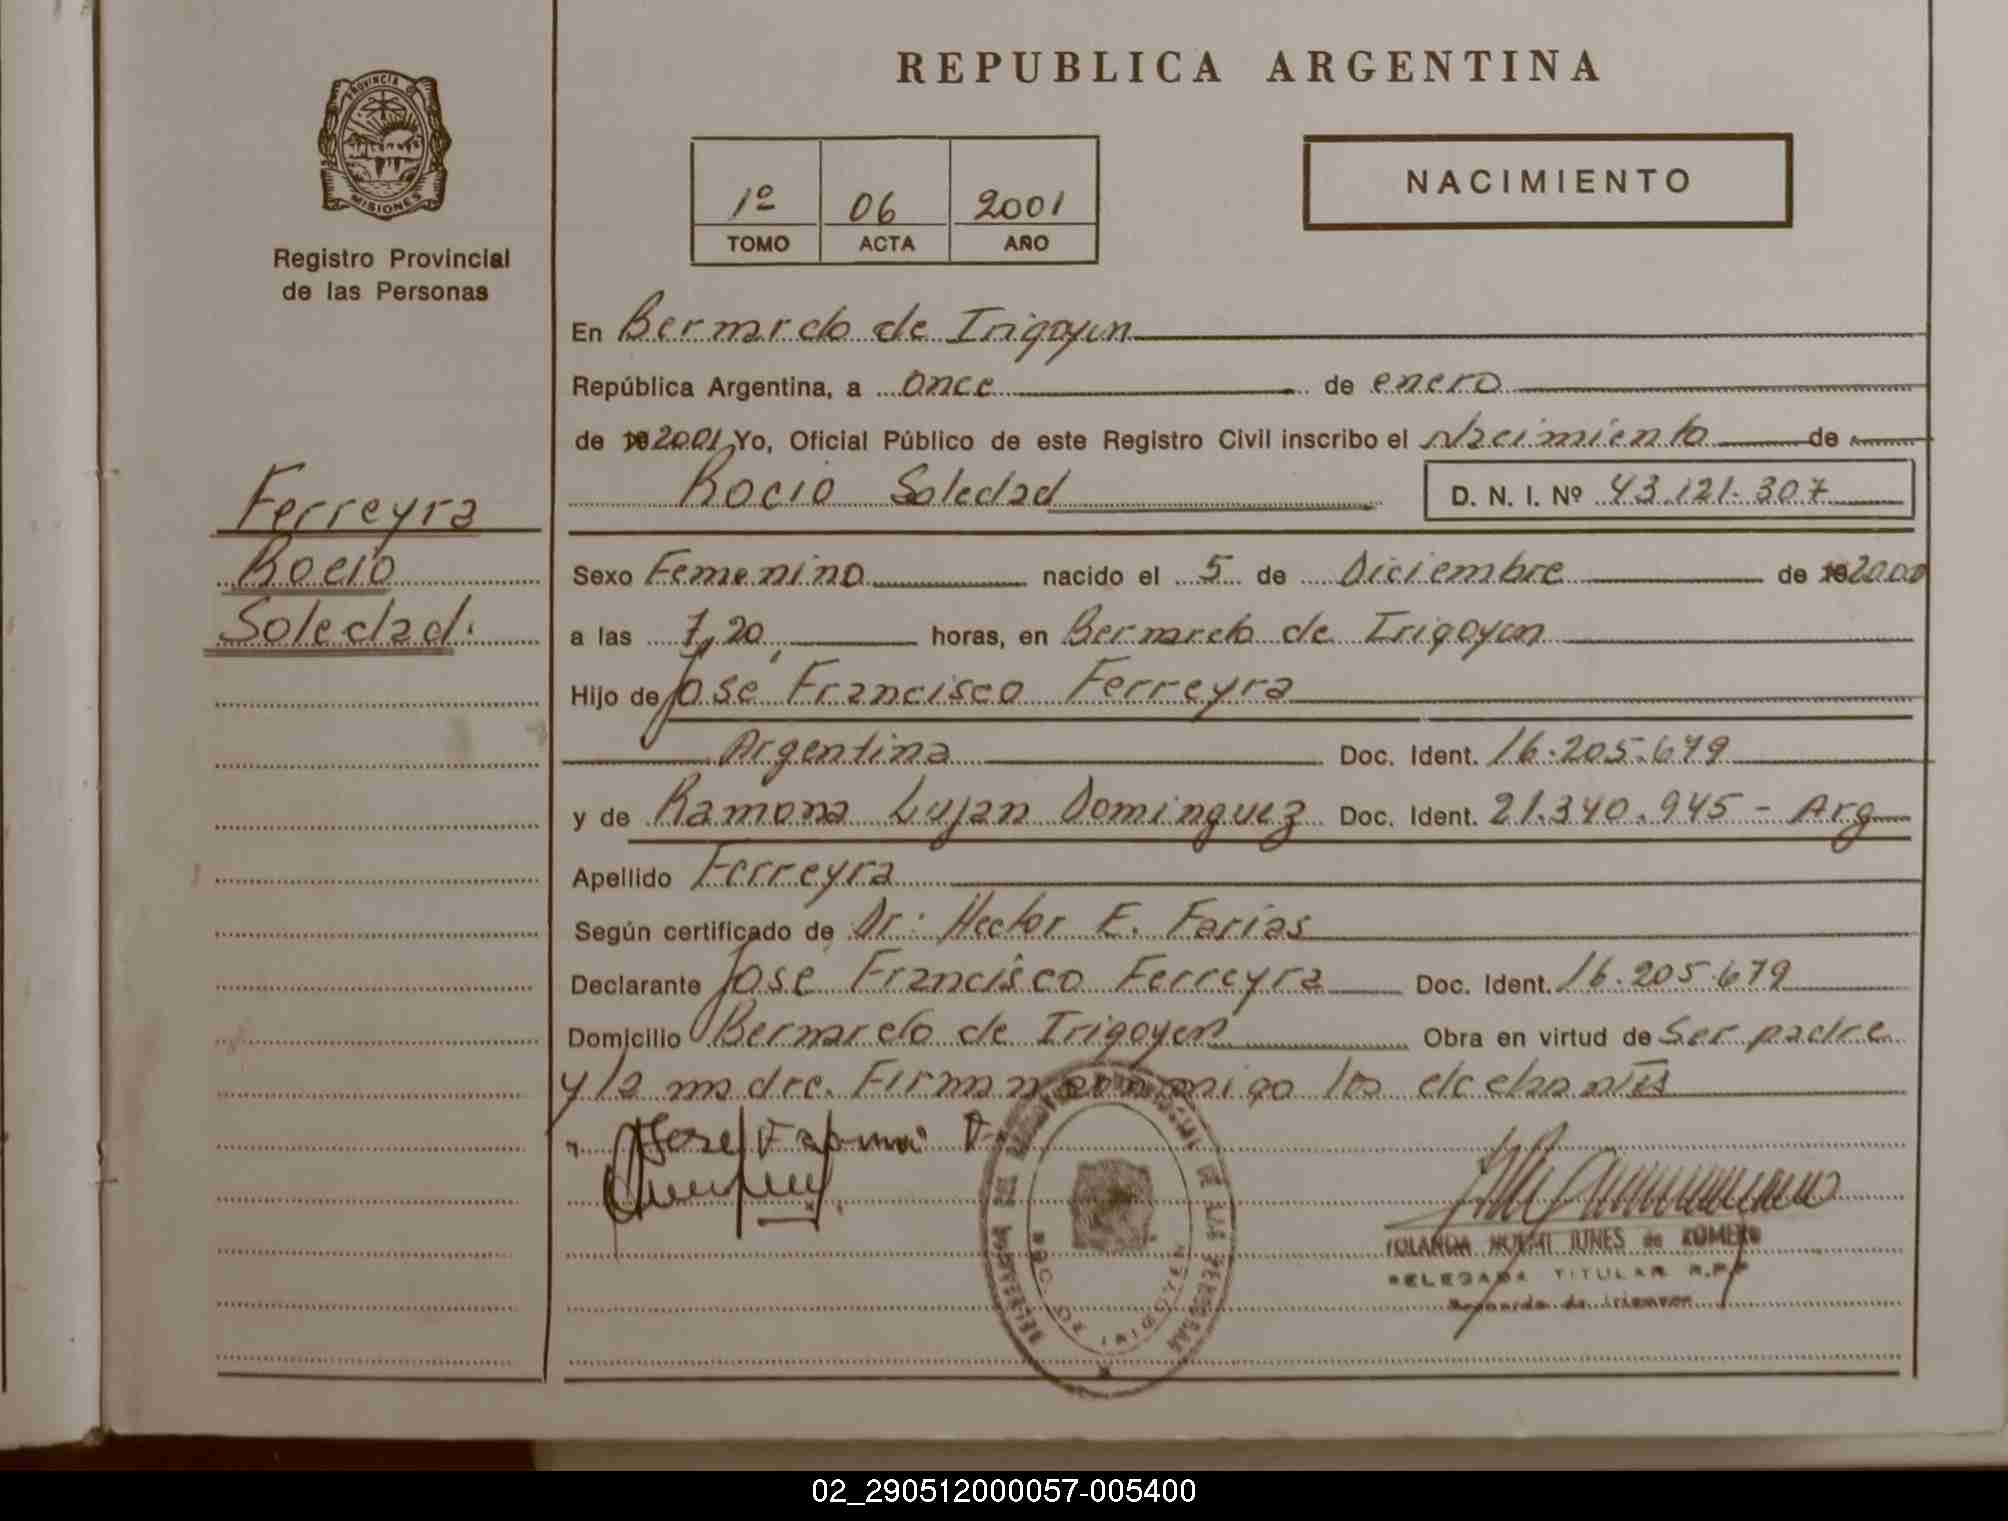 REPUBLICA ARGENTINA
PROVINCIA DE
MISIONES
Registro Provincial
de las Personas
1º 06 2001
TOMO ACTA AÑO
NACIMIENTO
En Bernardo de Irigoyen
República Argentina, a once de enero
de 2001 Yo, Oficial Público de este Registro Civil inscribo el Nacimiento de
Rocio Soledad D. N. I. Nº 43.121.307
Ferreyra
Rocio
Soledad.
Sexo Femenino nacido el 5 de Diciembre de 2000
a las 7,20 horas, en Bernardo de Irigoyen
Hijo de José Francisco Ferreyra
Argentina Doc. Ident. 16.205.679
y de Ramona Lujan Dominguez Doc. Ident. 21.340.945 - Arg
Apellido Ferreyra
Según certificado de Dr: Hector E. Farias
Declarante José Francisco Ferreyra Doc. Ident. 16.205.679
Domicilio Bernardo de Irigoyen Obra en virtud de Ser padre
y la madre. Firman conmigo los
YOLANDA NOEMI IUNES de ROMERO
DELEGADA TITULAR R.P.P
Bernardo de Irigoyen
02_290512000057-005400